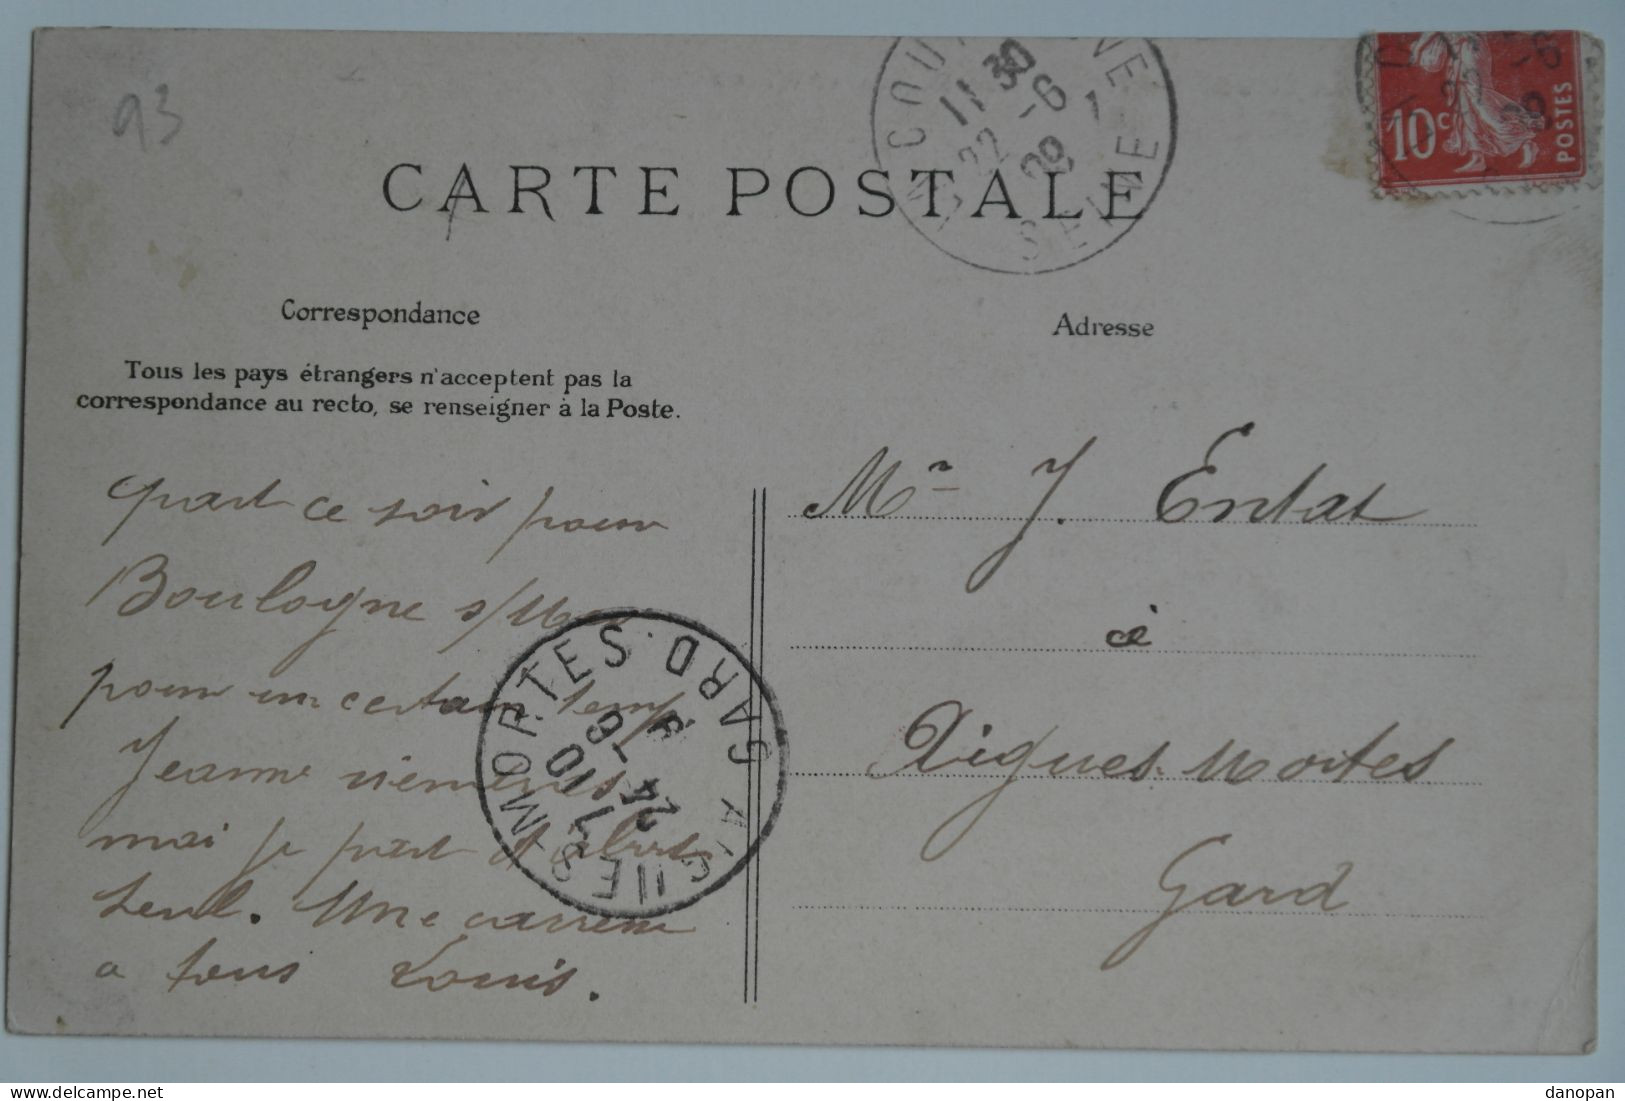 93
CARTE POSTALE
LA COU NEUVE
11 30
22 -6
09
SEINE
10c
POSTES
Correspondance
Adresse
Tous les pays étrangers n'acceptent pas la
correspondance au recto, se renseigner à la Poste.
part ce soir pour
Boulogne s/Mer
pour un certain temp
Jeanne
moi je part
seul. Une
a tous Louis.
Mr J. Entat
à
Aigues-Mortes
Gard
AIGUES-MORTES . GARD
17 10
24 -6
09
danopan